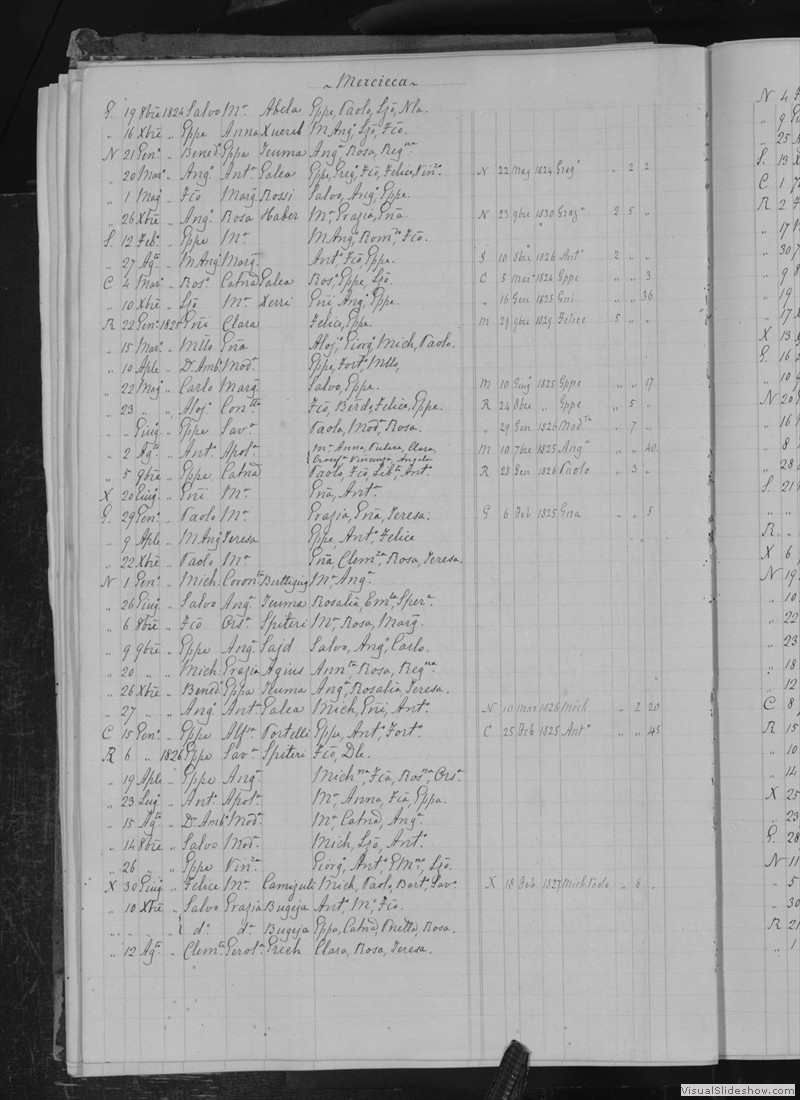 ~ Mercieca ~
G. 19 8bre 1824 Salvo Mª Abela Gppe, Paolo, Ljo, Nla.
„ 16 Xbre „ Gppe Anna Xuereb M Angº, Ljo, Fco.
N 21 Genº „ Benedº Gppa Teuma Angª Rosa, Regna
„ 20 Marº „ Angº Antª Galea Gppe, Gregº Fco, Felice, Vinzº N 22 Mag 1824 Gregº „ 2 2
„ 1 Magº „ Fco Margª Rossi Salvo, Angº, Gppe.
„ 26 Xbre „ Angº Rosa Haber Mª, Grazia, Gña. N 23 9bre 1830 Grazª 2 5 „
S. 12 Febº „ Gppe Mª M Angº, Romdº, Fco.
„ 27 Agto „ M Angº Margª Antº, Fco, Gppe. S 10 8bre 1826 Antº 2 „ „
C 4 Marº „ Rosº Catnª Galea Rosº, Gppe, Ljo. C 5 Mar 1824 Gppe „ „ 3
„ 10 Xbre „ Ljo Mª Xerri Gñi Angº, Gppe. „ 16 Gen 1825 Gñi „ „ 36
R 22 Genº 1825 Gñi Clara Felice, Gppe. M 29 9bre 1829 Felice 5 „ „
„ 15 Marº „ Mllo Gña Alojº, Giorgº, Mich, Paolo.
„ 10 Aple „ Dº Ambº Modª Gppe, Fortº, Mllo,
„ 22 Magº „ Carlo Margª Salvo, Gppe. M 10 Giug 1825 Gppe „ „ 17
„ 23 „ „ Alojº Contta Fco, Berdo, Felice, Gppe. R 24 8bre „ Gppe „ 5 „
„ „ Giug. „ Gppe Savª Paola, Modª, Rosa. „ 29 Gen 1826 Modta „ 7 „
„ 2 Agto „ Antº Apolª Mª Anna, Pulera, Clara, M 10 7bre 1825 Angª „ „ 40
Vincenza, Angela
„ 5 9bre „ Gppe Catnª Paolo, Fco, Libª, Antº. R 28 Gen 1826 Paolo „ 3 „
X 20 Giug. „ Gñi Mª Gña, Antª
G. 29 Genº „ Paolo Mª Grazia, Gña, Teresa. G 6 Feb 1825 Gña „ „ 5
„ 9 Aple „ M Angº Teresa Gppe, Antº, Felice
„ 22 Xbre „ Paolo Mª Gña, Clemza, Rosa, Teresa.
N 1 Genº „ Mich: Coronta Buttigieg Mª Angª
„ 26 Giug. „ Salvo Angª Teuma Rosalia, Emla, Sperª.
„ 6 8bre „ Fco Orsª Spiteri Mª, Rosa, Margª
„ 9 9bre „ Gppe Angª Sajd Salvo, Angº, Carlo.
„ 20 „ „ Mich: Grazia Agius Annta, Rosa, Regna
„ 26 Xbre „ Benedº Gppa Teuma Angª, Rosalia, Teresa.
„ 27 „ „ Angº Antª Galea Mich, Gñi, Antº. N 10 Mar 1826 Mich „ 2 20
C 15 Genº „ Gppe Alfsa Portelli Gppe, Antº, Fortº. C 25 Feb 1825 Antº „ „ 45
R 6 „ 1826 Gppe Savª Spiteri Fco, Dle.
„ 19 Aple „ Gppe Angª Michna, Fca, Rosna, Orsª.
„ 23 Lug. „ Antº Apolª Mª, Anna, Fca, Gppa.
„ 15 Agto „ Dº Ambº Modª Mª, Catnª, Angª
„ 14 8bre „ Salvo Modª Mich, Ljo, Antº.
„ 26 „ „ Gppe Vinza Giorgº, Antº, Emno, Ljo.
X 30 Giug. „ Felice Mª Camizuli Mich, Paolo, Bart, Savº. X 18 Feb 1827 Mich Paolo „ 8 „
„ 10 Xbre „ Salvo Grazia Bugeja Antº, Mº, Fco.
„ „ „ „ dº dª Bugeja Gppa, Catnª, Rosa.
„ 12 Agto „ Clemte Gerolª Grech Clara, Rosa, Teresa.
N 4
„ 9
„ 25
S. 13
C 1
R 2
„ 17
„ 30
„ 9
„ 19
„ 17
X 13
G. 16
„ 10
N 20
„ 16
„ 8
„ 28
S. 21
R
X 6
N 19
„ 10
„ 22
„ 23
„ 18
„ 12
C 8
R 15
„ 10
„ 14
X 25
„ 23
G. 28
N 11
„ 5
„ 30
R 21
„ 1
VisualSlideshow.com